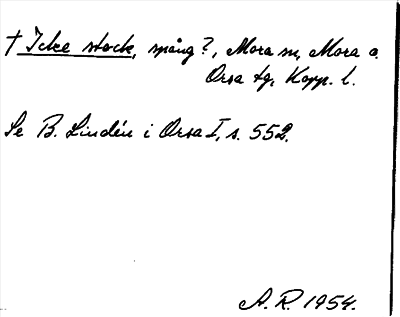 † Icke stock, spång?, Mora sn, Mora o.
Orsa tg, Kopp. l.
Se B. Lindén i Orsa I, s. 552.
A. R. 1954.